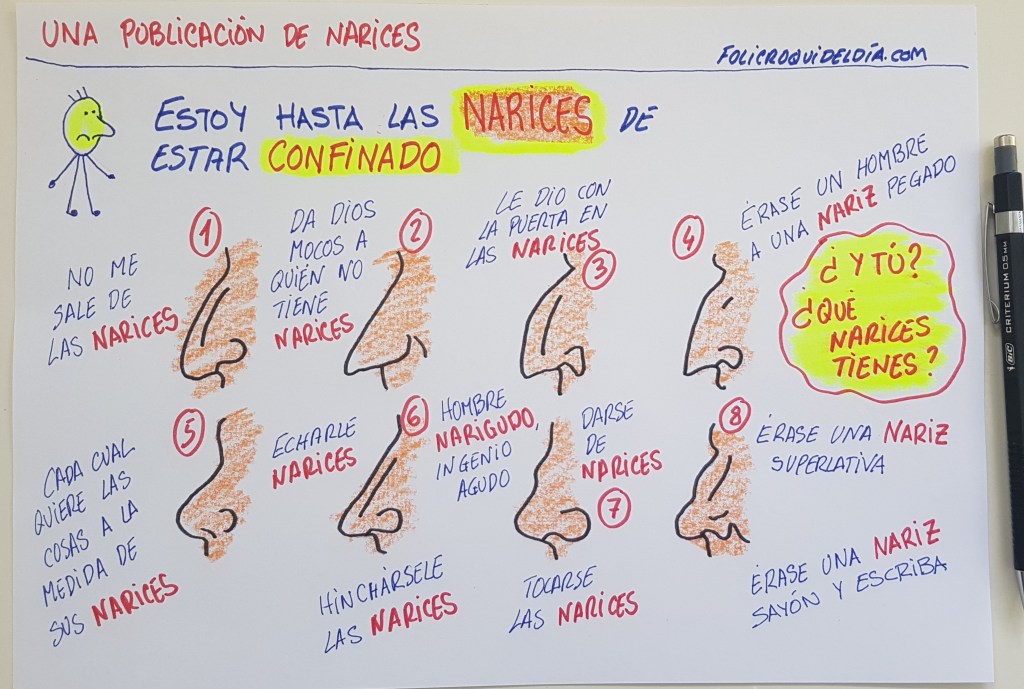 UNA PUBLICACIÓN DE NARICES
FOLICROQUIDELDÍA.COM
ESTOY HASTA LAS NARICES DE
ESTAR CONFINADO
1
NO ME
SALE DE
LAS NARICES
DA DIOS
MOCOS A
QUIÉN NO
TIENE
NARICES
2
LE DIO CON
LA PUERTA EN
LAS NARICES
3
4
ÉRASE UN HOMBRE
A UNA NARIZ PEGADO
¿Y TÚ?
¿QUÉ
NARICES
TIENES?
5
CADA CUAL
QUIERE LAS
COSAS A LA
MEDIDA DE
SUS NARICES
ECHARLE
NARICES
6
HOMBRE
NARIGUDO,
INGENIO
AGUDO
HINCHÁRSELE
LAS NARICES
DARSE
DE
NARICES
7
TOCARSE
LAS NARICES
8
ÉRASE UNA NARIZ
SUPERLATIVA
ÉRASE UNA NARIZ
SAYÓN Y ESCRIBA
BIC CRITERIUM 0.5 MM